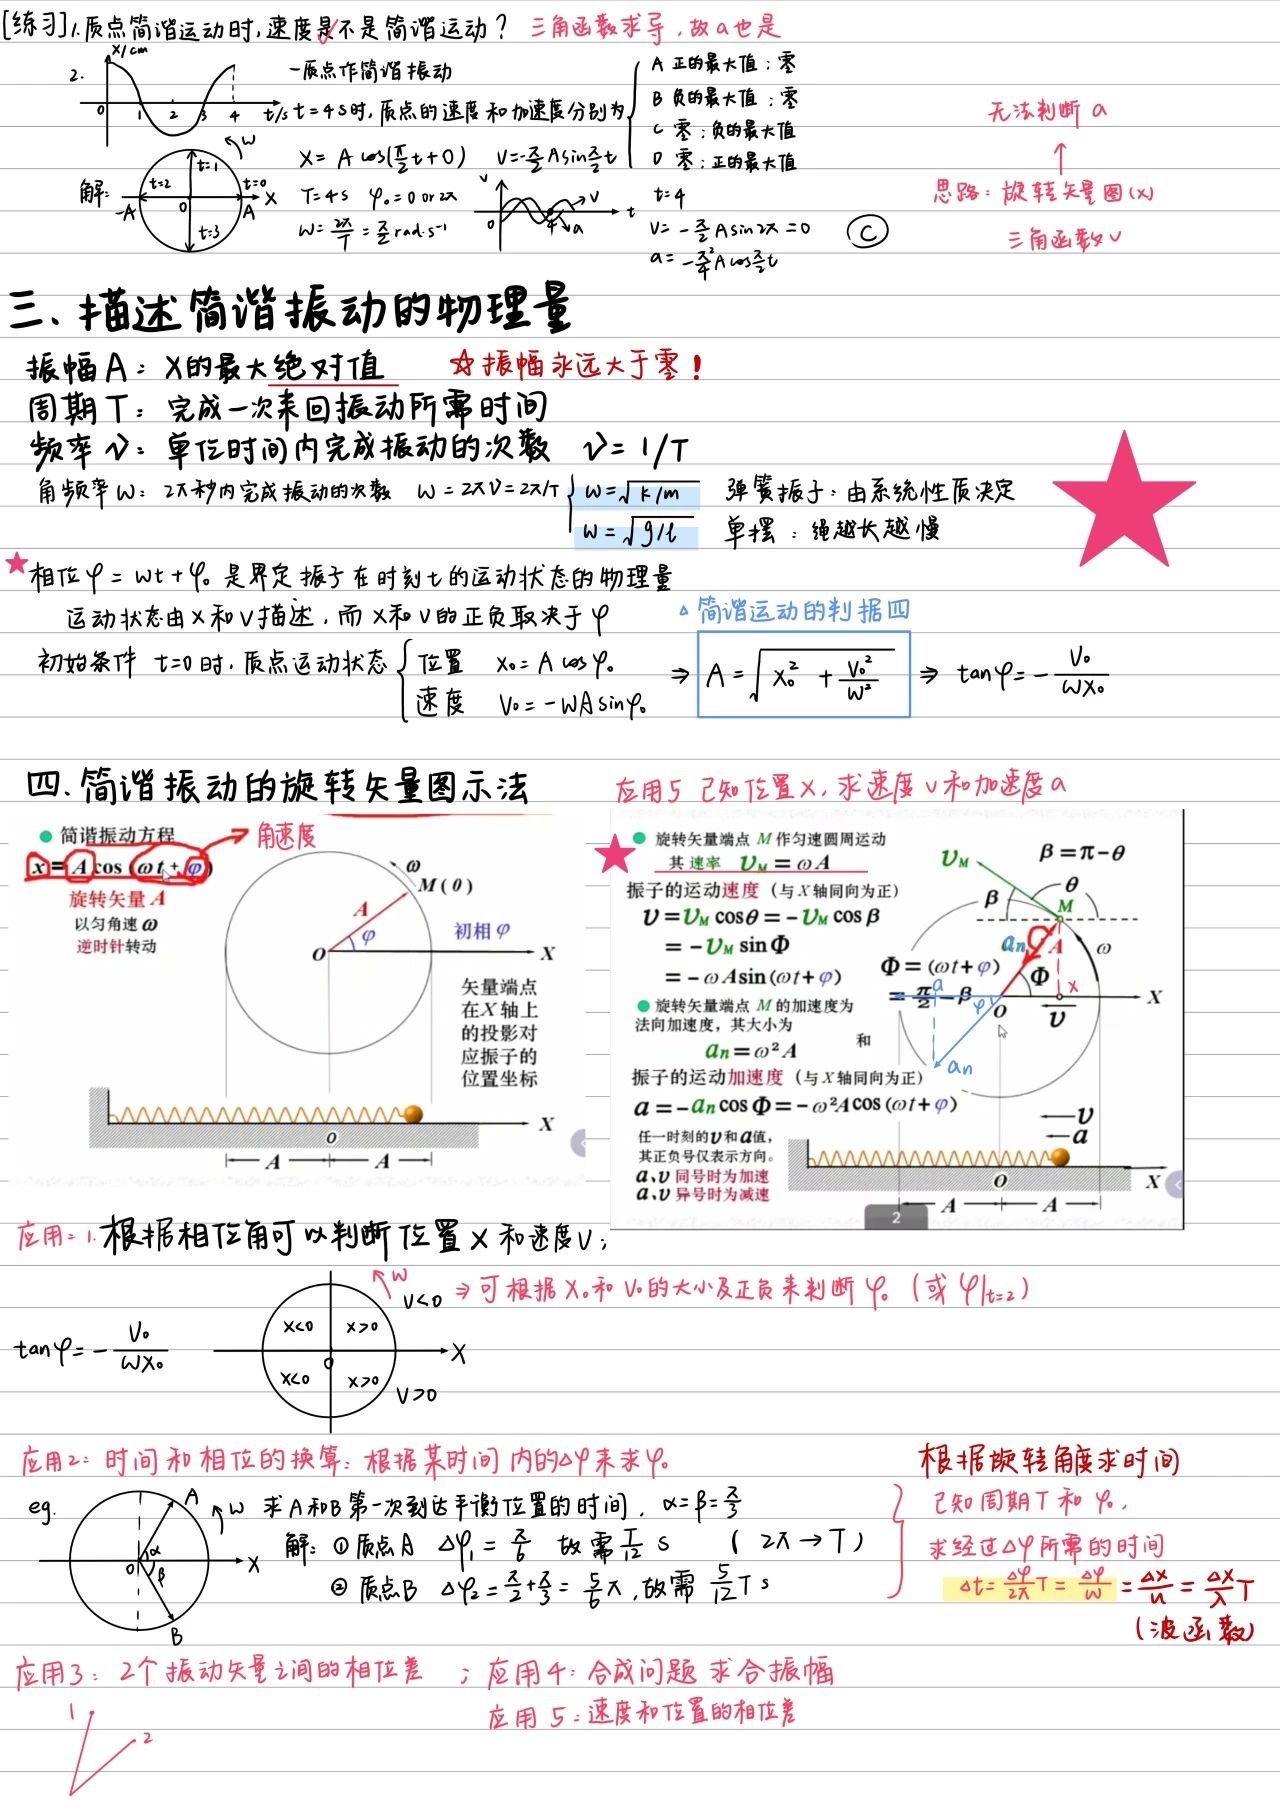 [练习] 1. 质点简谐运动时,速度是不是简谐运动? 三角函数求导,故a也是
2. x/cm 0 1 2 3 4 t/s
一质点作简谐振动
t=4s时,质点的速度和加速度分别为
A 正的最大值;零
B 负的最大值;零
C 零;负的最大值
D 零;正的最大值
解: -A t=2 t=1 t=0 t=3 0 A X ω
X = A cos(π/2 t+0) V=-π/2 A sin π/2 t
T=4s φ₀=0 or 2π
ω=2π/T=π/2 rad·s⁻¹
v 0 4 v a t
t=4
V= -π/2 A sin2π=0
a= -π²/4 A cos π/2 t
C
无法判断 a
↑
思路: 旋转矢量图(x)
三角函数√
三、描述简谐振动的物理量
振幅A: X的最大绝对值 ☆振幅永远大于零!
周期T: 完成一次来回振动所需时间
频率ν: 单位时间内完成振动的次数 ν=1/T
角频率ω: 2π秒内完成振动的次数 ω=2πν=2π/T
ω=√k/m 弹簧振子:由系统性质决定
ω=√g/l 单摆:绳越长越慢
相位φ=ωt+φ₀ 是界定振子在时刻t的运动状态的物理量
运动状态由X和V描述,而X和V的正负取决于φ
△简谐运动的判据四
初始条件 t=0时,质点运动状态
位置 x₀=A cosφ₀
速度 V₀=-ωA sinφ₀
⇒ A=√x₀²+V₀²/ω² ⇒ tanφ=-V₀/ωx₀
四.简谐振动的旋转矢量图示法
简谐振动方程
x=A cos(ωt+φ) → 角速度
旋转矢量 A
以匀角速 ω
逆时针转动
ω
M(0)
A
φ
初相φ
O X
矢量端点
在X轴上
的投影对
应振子的
位置坐标
X
O
A A
应用5 已知位置X,求速度v和加速度a
旋转矢量端点 M 作匀速圆周运动
其 速率 υM=ωA
振子的运动速度(与X轴同向为正)
υ=υM cosθ=-υM cosβ
=-υM sinΦ
=-ωA sin(ωt+φ)
旋转矢量端点 M 的加速度为
法向加速度,其大小为 和
an=ω²A
振子的运动加速度(与X轴同向为正)
a=-an cosΦ=-ω²A cos(ωt+φ)
任一时刻的υ和a值,
其正负号仅表示方向。
a、υ同号时为加速
a、υ异号时为减速
υM β=π-θ
β θ
M
an A ω
Φ=(ωt+φ) Φ
=π/2-β
a φ O x υ X
an
υ
a
X
O
A A
2
应用: 1. 根据相位角可以判断位置X和速度V;
ω
V<0
⇒可根据X₀和V₀的大小及正负来判断φ₀ (或φ|t=2)
tanφ=-V₀/ωx₀
x<0 x>0
0 X
x<0 x>0
V>0
应用2: 时间和相位的换算: 根据某时间内的△φ来求φ₀
eg. A ω 0 α β X B
求A和B第一次到达平衡位置的时间, α=β=π/3
解: ① 质点A △φ₁=π/6 故需 T/12 s (2π→T)
② 质点B △φ₂=π/2+π/3=5/6 π,故需 5/12 T s
根据旋转角度求时间
已知周期T和φ₀,
求经过△φ所需的时间
△t=△φ/2π T=△φ/ω=△x/u=△x/λ T
(波函数)
应用3: 2个振动矢量之间的相位差 ; 应用4: 合成问题 求合振幅
应用5: 速度和位置的相位差
1
2